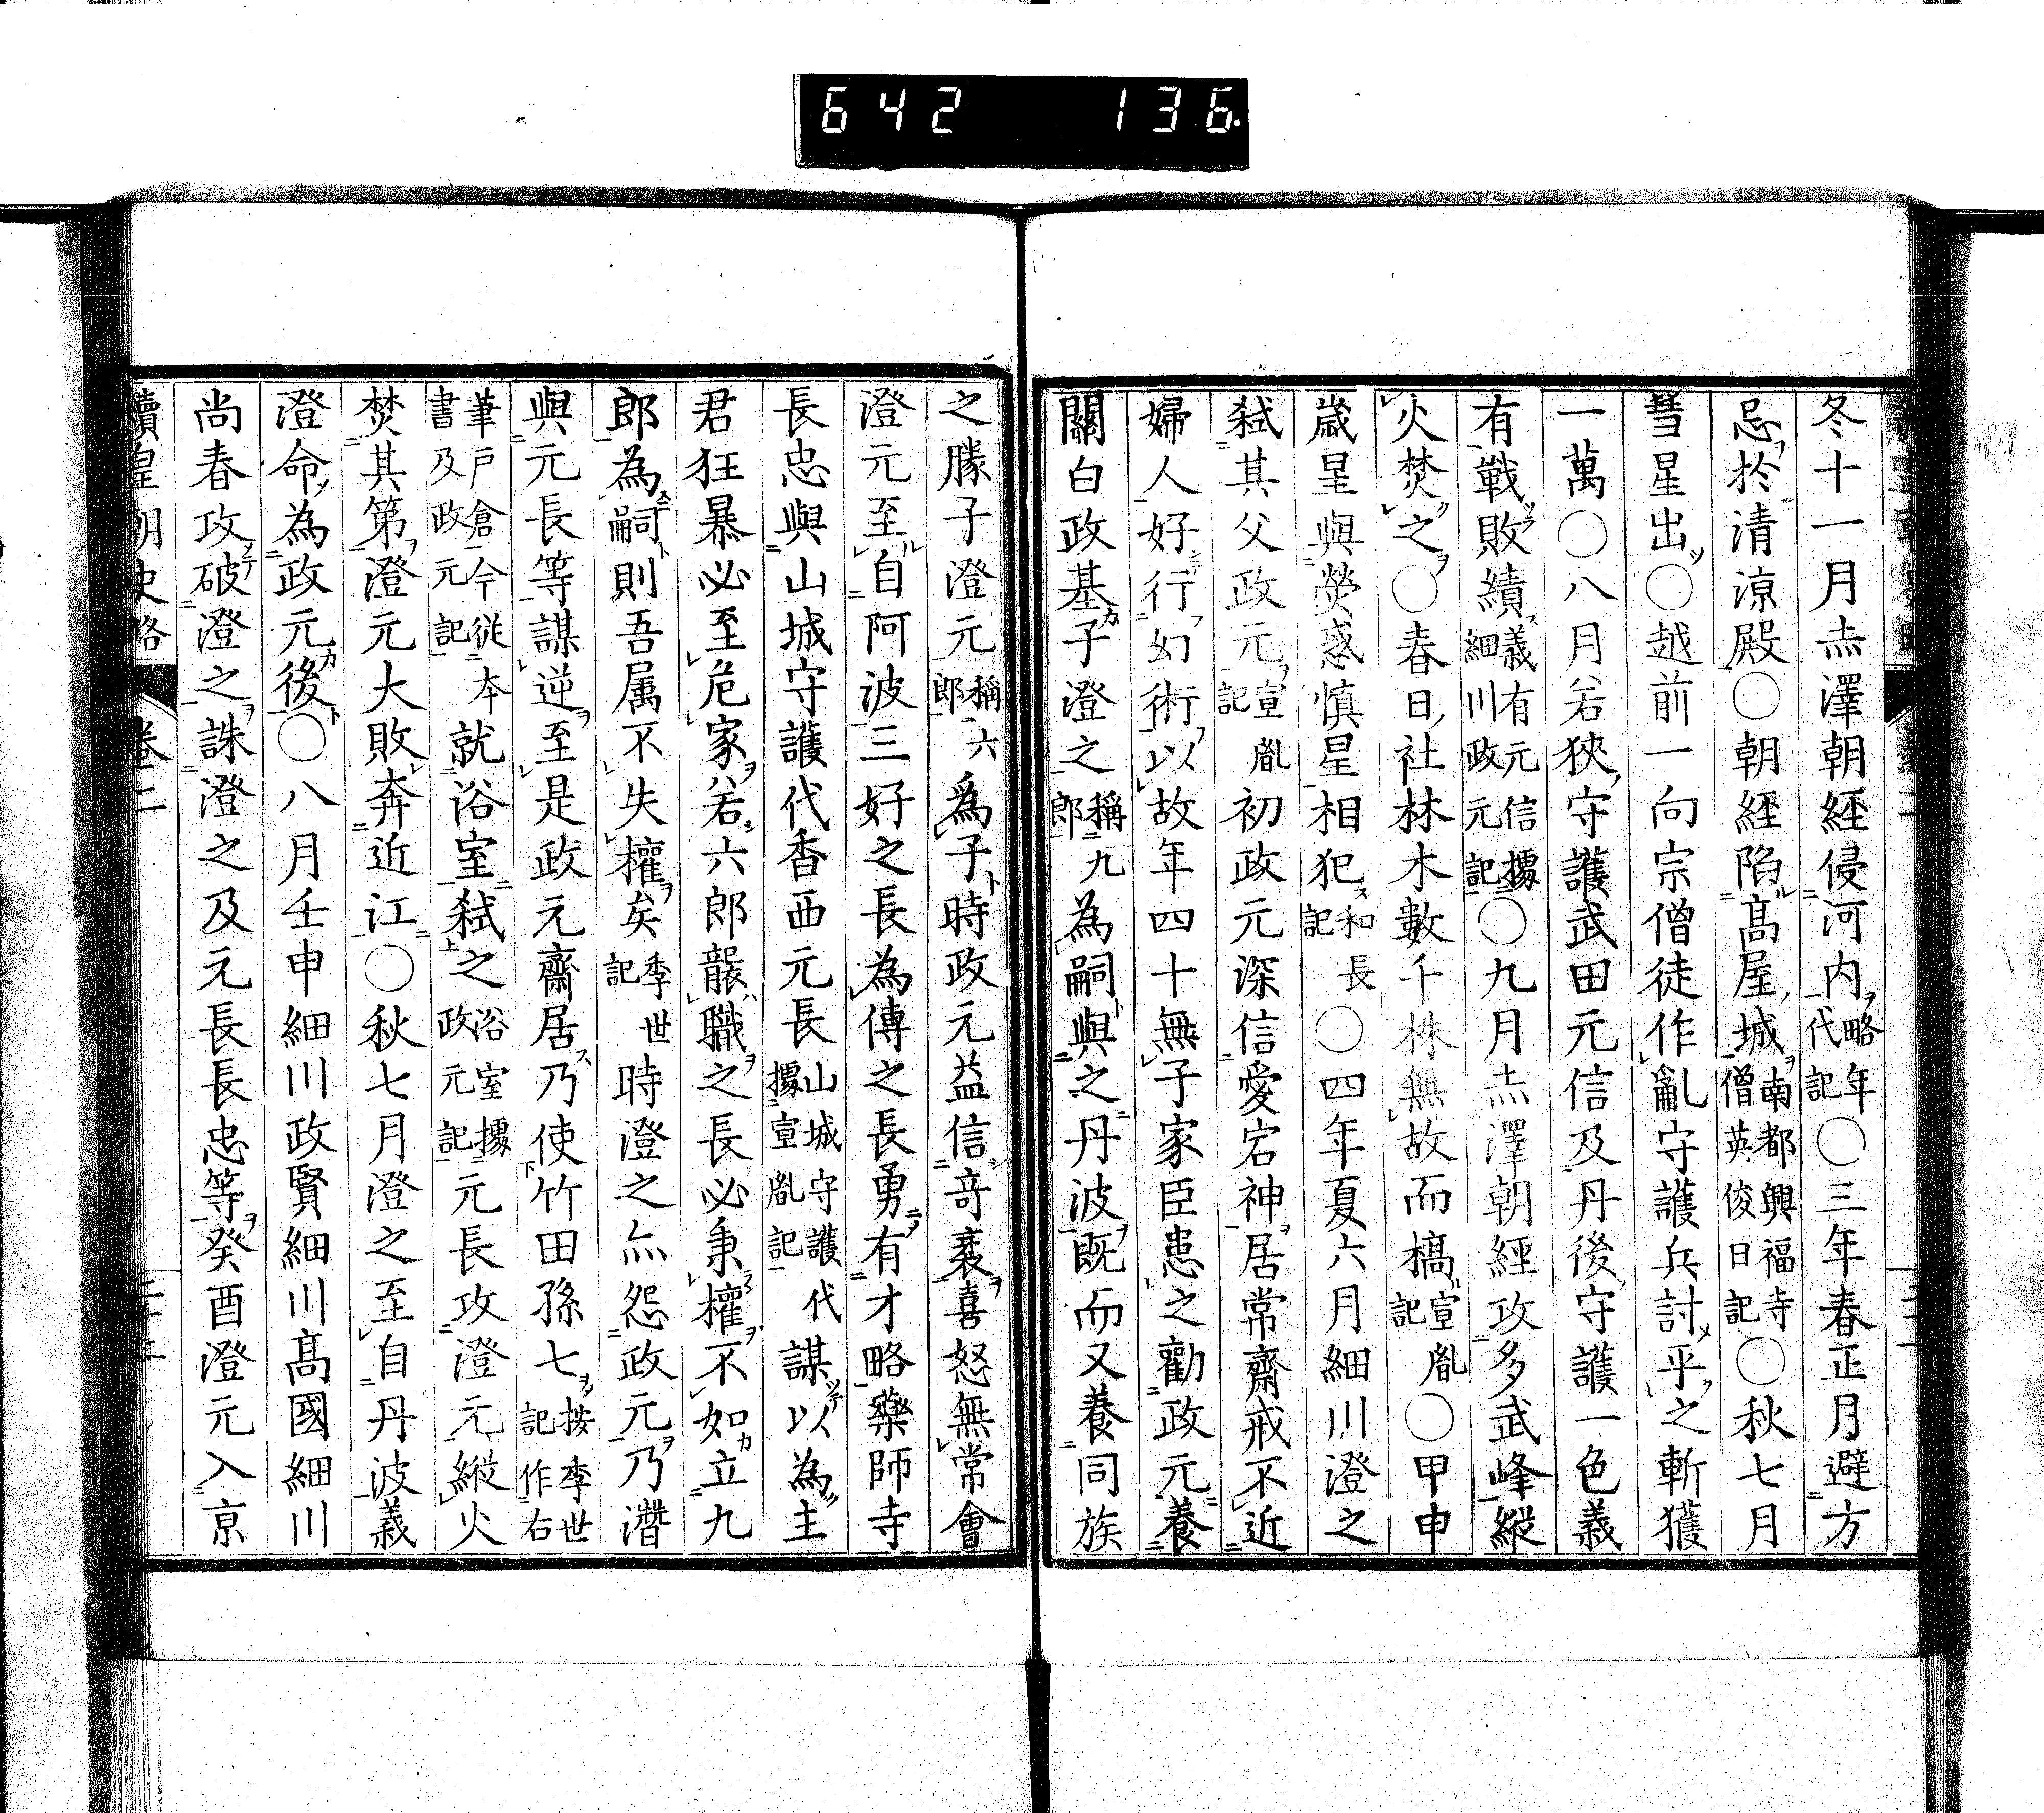 642 136.
冬十一月赤澤朝經侵河内略年代記〇三年春正月避方
忌於清涼殿〇朝經陷髙屋城南都興福寺僧英俊日記〇秋七月
彗星出〇越前一向宗僧徒作亂守護兵討平之斬獲
一萬〇八月若狹守護武田元信及丹後守護一色義
有戰敗績義有元信據細川政元記〇九月赤澤朝經攻多武峰縱
火焚之〇春日社林木數千株無故而槁宣胤記〇甲申
歲星與熒惑慎星相犯和長記〇四年夏六月細川澄之
弑其父政元宣胤記初政元深信愛宕神居常齋戒不近
婦人好行幻術以故年四十無子家臣患之勸政元養
關白政基子澄之稱九郎為嗣與之丹波既而又養同族
之勝子澄元稱六郎爲子時政元益信竒衺喜怒無常會
澄元至自阿波三好之長為傳之長勇有才略藥師寺
長忠與山城守護代香西元長山城守護代據宣胤記謀以為主
君狂暴必至危家若六郎襲職之長必秉權不如立九
郎為嗣則吾属不失權矣季世記時澄之亦怨政元乃潛
與元長等謀逆至是政元齋居乃使竹田孫七按季世記作右
筆戸倉今從本書及政元記就浴室弑之浴室據政元記元長攻澄元縱火
焚其第澄元大敗奔近江〇秋七月澄之至自丹波義
澄命為政元後〇八月壬申細川政賢細川髙國細川
尚春攻破澄之誅澄之及元長長忠等癸酉澄元入京
續皇朝史略 卷二